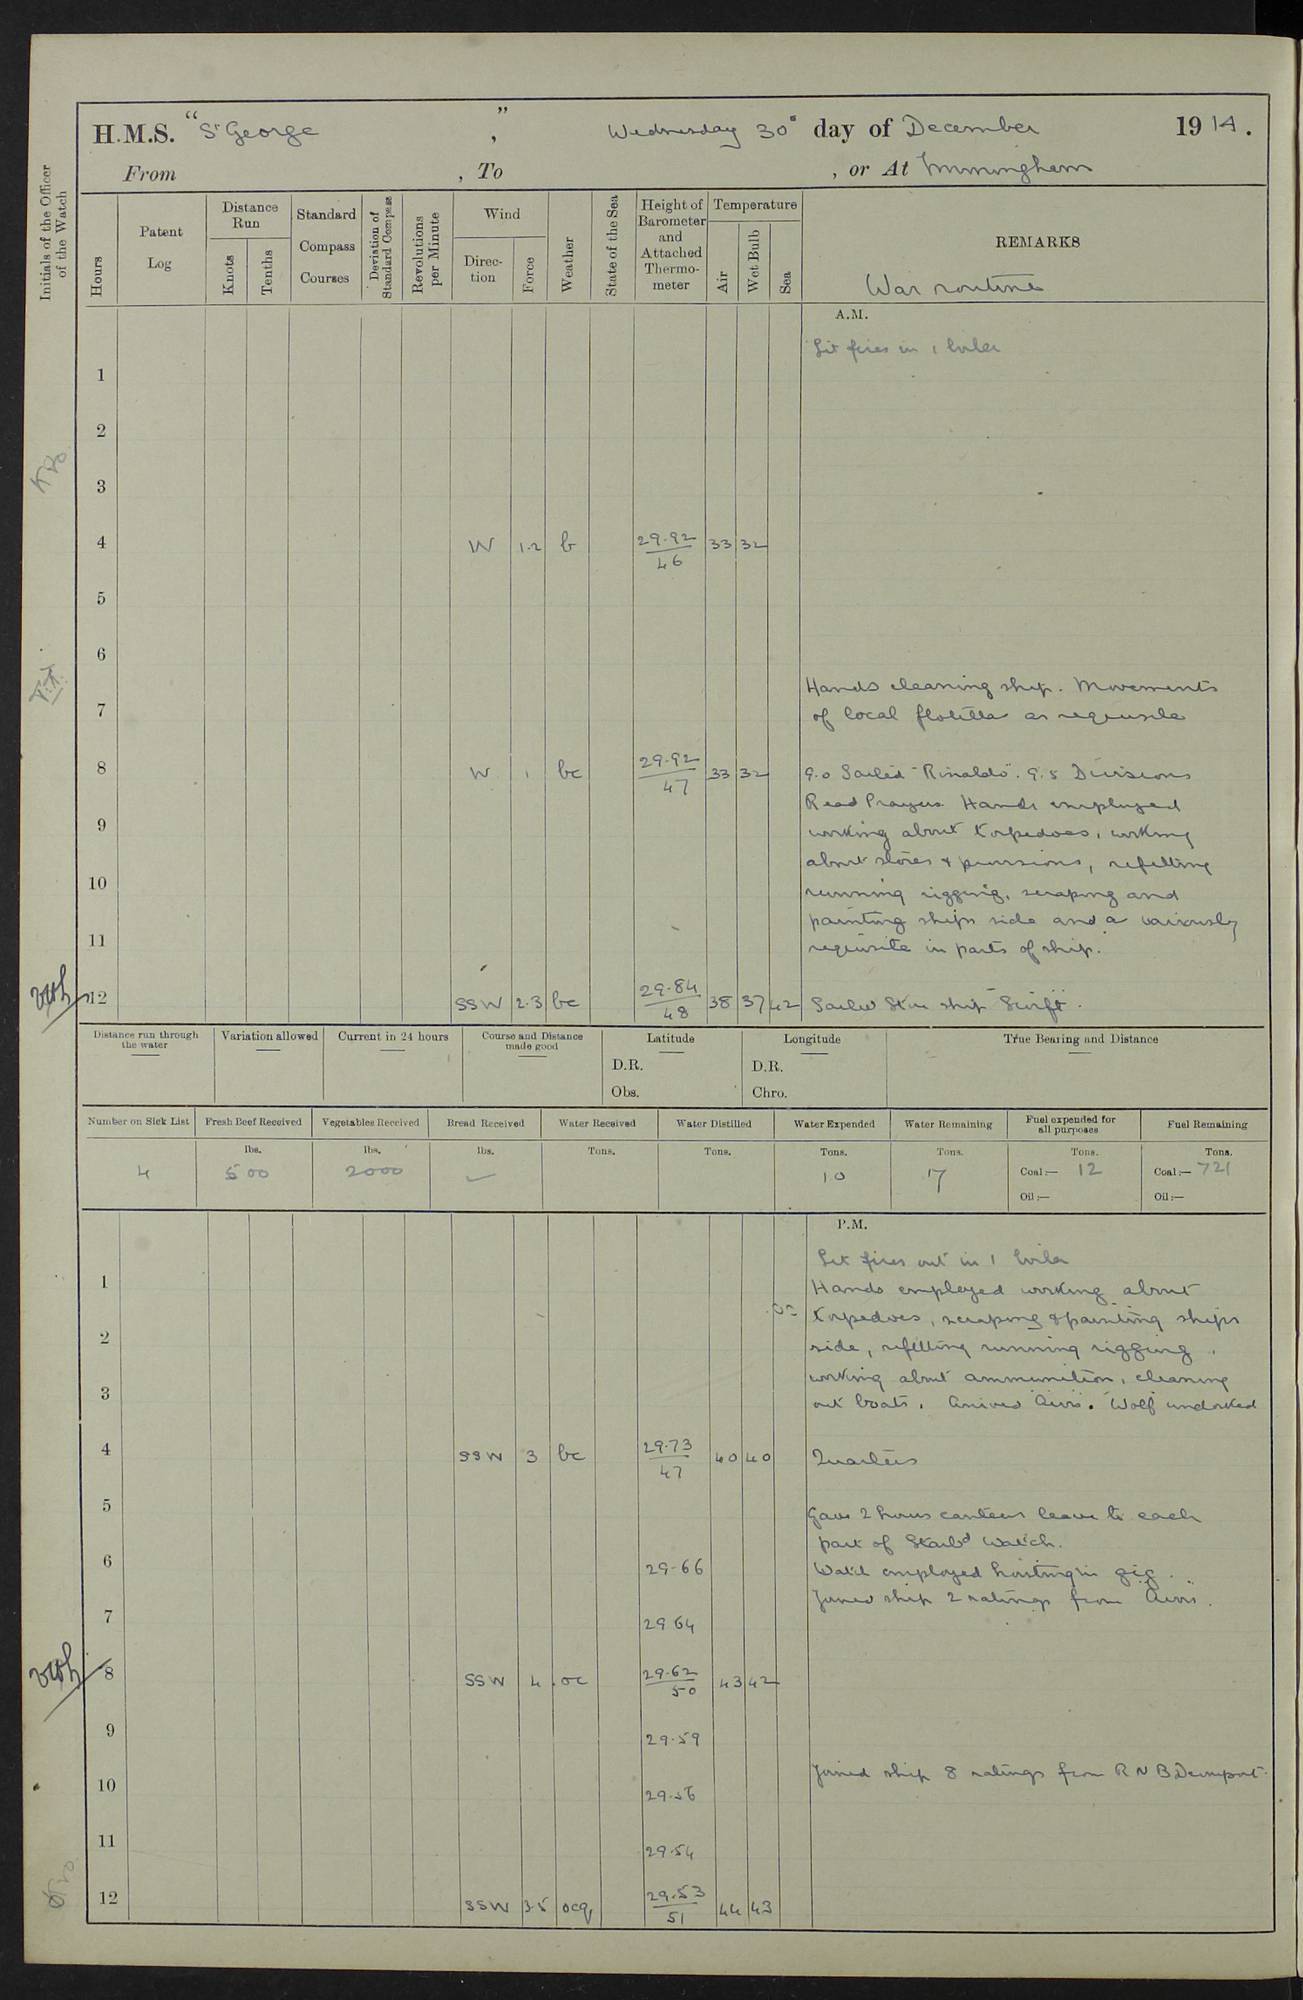 H.M.S. "St George", Wednesday 30th day of December 1914.
From , To , or At Immingham
Initials of the Officer of the Watch
Hours
Patent Log
Distance Run
Knots
Tenths
Standard Compass Courses
Deviation of Standard Compass
Revolutions per Minute
Wind
Direction
Force
Weather
State of the Sea
Height of Barometer and Attached Thermometer
Temperature
Air
Wet Bulb
Sea
REMARKS
War routine
A.M.
Lit fires in 1 boiler
1
2
3
4 W 1.2 b 29.92 33 32
46
5
6
Hands cleaning ship. Movements
7 of local flotilla as requisite
8 W 1 bc 29.92 33 32 9.0 Sailed "Rinaldo". 9.5 Divisions
47
Read Prayers Hands employed
9 working about torpedoes, working
about stores & provisions, refitting
10 running rigging, scraping and
painting ships side and a variously
11 requisite in parts of ship.
12 SSW 2.3 bc 29.84 38 37 42 Sailed ship Swift.
48
Distance run through the water
Variation allowed
Current in 24 hours
Course and Distance made good
Latitude
D.R.
Obs.
Longitude
D.R.
Chro.
True Bearing and Distance
Number on Sick List 4
Fresh Beef Received lbs. 500
Vegetables Received lbs. 2000
Bread Received lbs. ✓
Water Received Tons.
Water Distilled Tons.
Water Expended Tons. 10
Water Remaining Tons. 17
Fuel expended for all purposes Tons. Coal:— 12 Oil:—
Fuel Remaining Tons. Coal:— 721 Oil:—
P.M.
Let fires out in 1 boiler
1 Hands employed working about
torpedoes, scraping & painting ships
2 side, refitting running rigging,
working about ammunition, cleaning
3 out boats. Arrived . "Wolf" undocked
4 SSW 3 bc 29.73 40 40 Quarters
47
5 Gave 2 hours canteen leave to each
part of Starbd Watch.
6 29.66 Watch employed hoisting in gig.
Joined ship 2 ratings from .
7 29 64
8 SSW 4 oc 29.62 43 42
50
9 29.59
Joined ship 8 ratings from R N B Devonport.
10 29.56
11 29.54
12 SSW 3.5 ocq 29.53 44 43
51